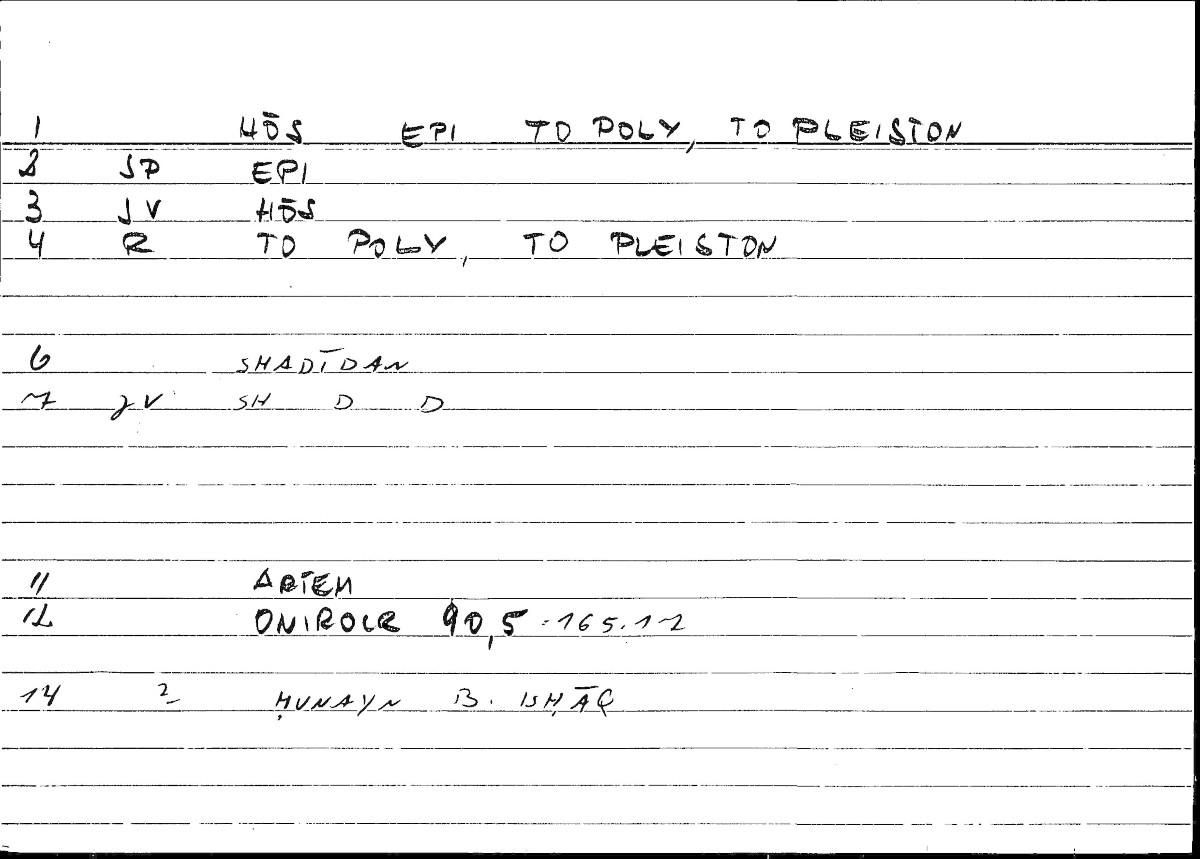 1 HŌS EPI TO POLY, TO PLEISTON
2 JP EPI
3 JV HŌS
4 R TO POLY, TO PLEISTON
6 SHADĪDAN
7 JV SH D D
11 ARTEM
12 ONIROCR 90,5 : 165.12
14 2 ḤUNAYN B. ISḤĀQ